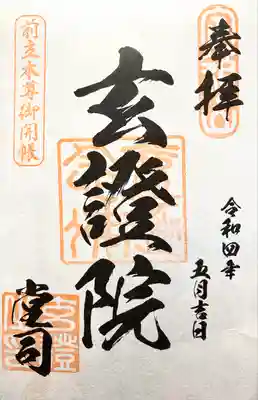 奉拝
令和四年
五月吉日
玄證院
堂司
前立本尊御開帳